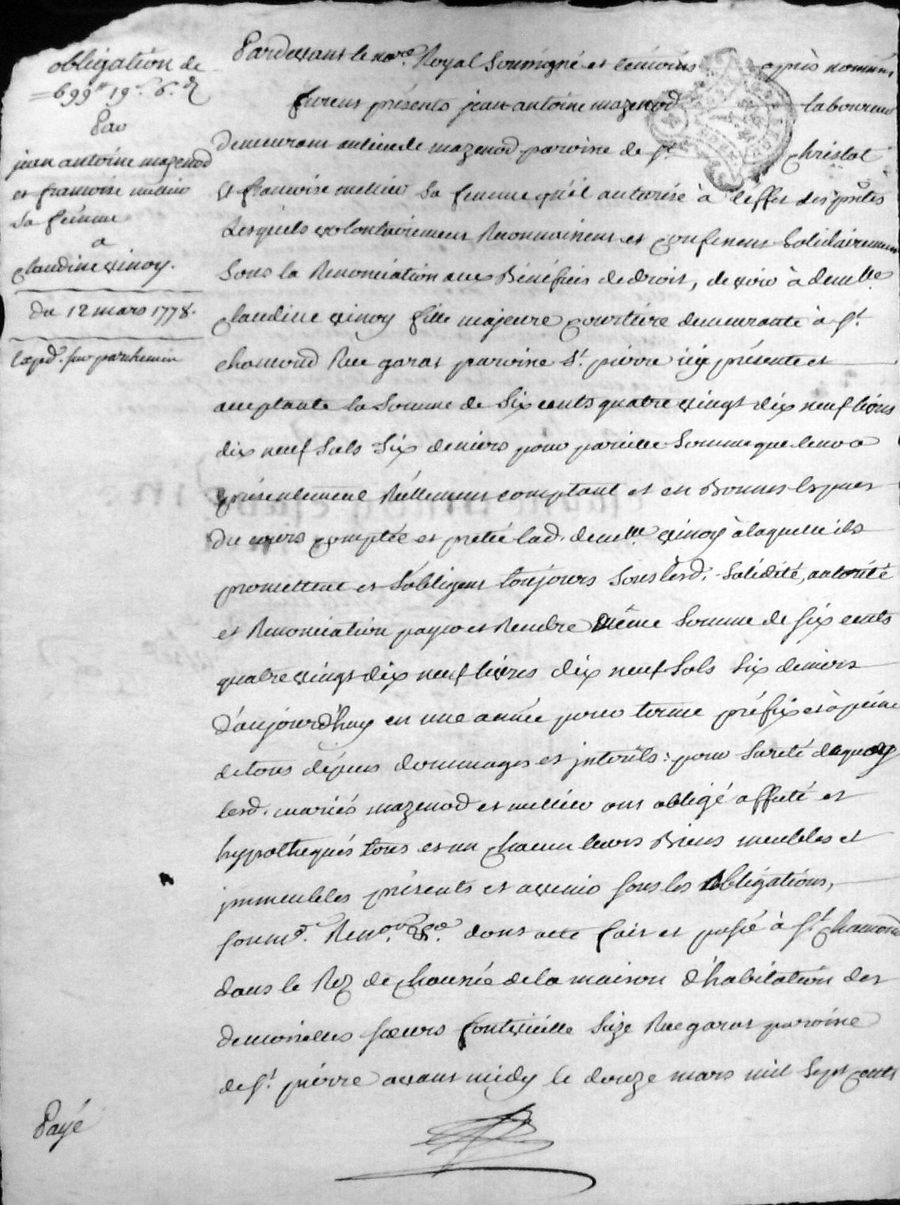 obligation de
699ᵗᵗ 19ˢ 6ᵈ
Par
jean antoine mazenod
et francoise melieu
sa femme
a
claudine vinoy.
du 12 mars 1778.
Exped. sur parchemin
Pardevant le no.re Royal soussigné et témoins après nommés
furent présents jean antoine mazenod laboureur
demeurant au lieu de mazenod paroisse de St. Christol
et francoise melieu sa femme qu'il autorise à l'effet des ptes
Lesquels volontairement Reconnaissent et confessent solidairement
sous la Renonciation aux Bénéfices de droit, devoir à demlle.
claudine vinoy fille majeure demeurante à St.
chamond Rue garat paroisse St. pierre icy présente et
acceptante la somme de six cents quatre vingt dix neuf livres
dix neuf sols six deniers pour pareille somme que leur a
présentement Réellement comptant et en Bonnes Espèces
du cours comptée et pretée lad. demlle vinoy à laquelle ils
promettent et s'obligent toujours sous lesd. solidité, autorité
et Renonciation payer et Rendre même somme de six cents
quatre vingt dix neuf livres dix neuf sols six deniers
d'aujourd'huy en une année pour terme préfix et à peine
de tous dépens dommages et intérêts : pour sureté de quoy
lesd. mariés mazenod et melieu ont obligé affecté et
hypothequés tous et un chacun leurs Biens meubles et
immeubles présents et avenir sous les obligations,
soum.s Renon.on &a. dont acte fait et passé à St. chamond
dans le Rez de chaussée de la maison d'habitation des
demoiselles sœurs size Rue garat paroisse
de St. pierre avant midy le douze mars mil sept cents
Payé